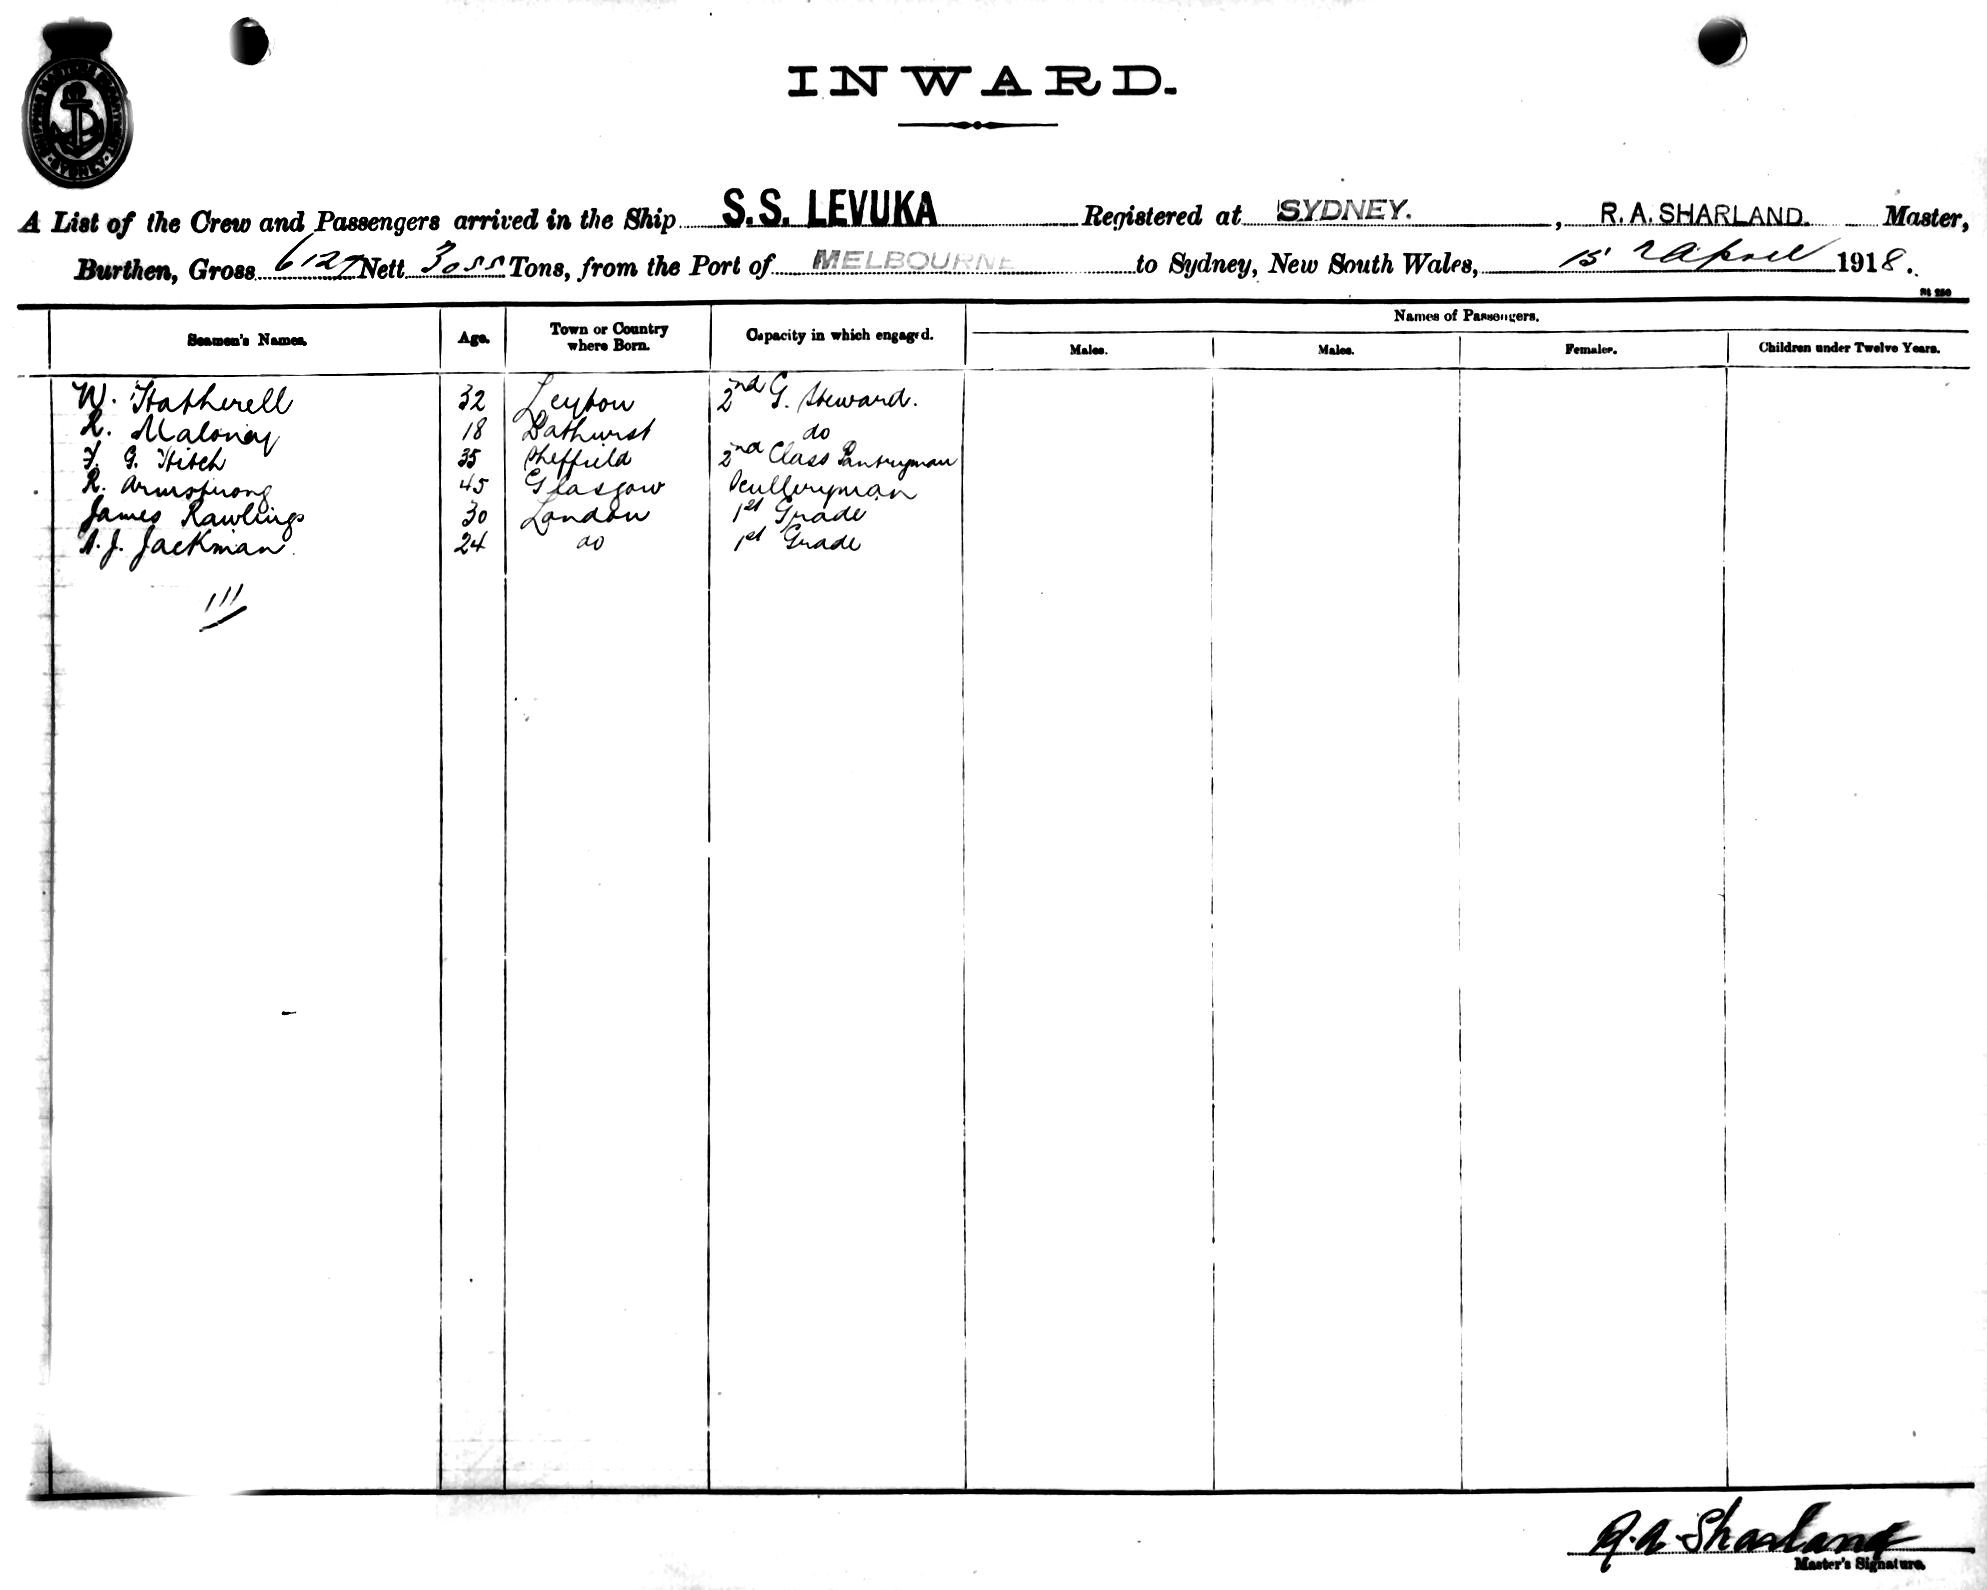 INWARD.
A List of the Crew and Passengers arrived in the Ship S.S. LEVUKA Registered at SYDNEY. , R. A. SHARLAND. Master,
Burthen, Gross 6127 Nett 3055 Tons, from the Port of MELBOURNE to Sydney, New South Wales, 15 April 1918.
Seamen's Names. Age. Town or Country where Born. Capacity in which engaged. Names of Passengers.
Males. Males. Females. Children under Twelve Years.
W. Hatherell 32 Leyton 2nd G. Steward.
R. Maloney 18 Bathurst do
F. G. Hitch 35 Sheffield 2nd Class Pantryman
R. Armstrong 45 Glasgow Sculleryman
James Rawlings 30 London 1st Grade
A. J. Jackman. 24 do 1st Grade
111
R. A. Sharland
Master's Signature.